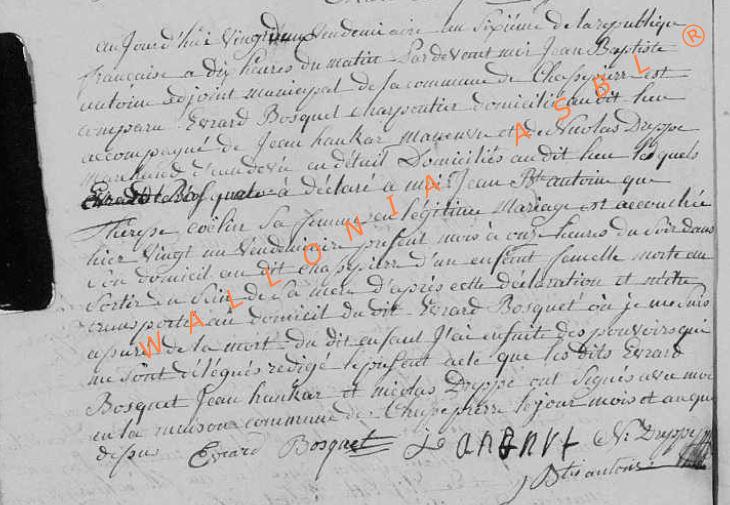 aujourd'huÿ vingt deux vendemiaire an sixième de la republique
française a dix heures du matin Pardevant moi Jean Baptiste
antoine adjoint municipal de la commune de Chassepierre est
comparu Evrard Bosquet charpentier domicilié au dit lieu
accompagné de Jean hankar maneuvre et de Nicolas Dreppe
marchand en détail Domiciliés au dit lieu lesquels
Evrard Bosquet a déclaré a moi Jean Bte antoine que
Therese sa femme en légitime Mariage est accouchée
hier vingt un vendemiaire présent mois à onze heures du Soir dans
Son domicil au dit chassepierre d'un enfant femelle morte au
Sortir du Sein de Sa mere d'après cette déclaration et m'être
transporté au domicil du dit Evrard Bosquet où je me suis
assuré de la mort du dit enfant J'ai ensuite des pouvoirs qui
me sont délégués redigé le présent acte que les dits Evrard
Bosquet Jean hankar et nicolas Dreppe ont Signés avec moi
en la maison commune de Chassepierre le jour mois et an que
dessus Evrard Bosquet N: Dreppe
Bte antoine
WALLONIA ASBL ®